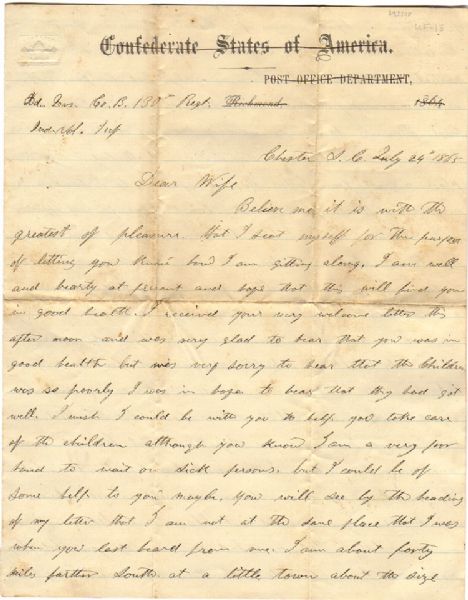 Confederate States of America.
POST OFFICE DEPARTMENT,
Hd. Qrs. Co. B. 130th Regt. Richmond 1864
Ind. Vol. Inf
Chester S. C. July 24th 1865
Dear Wife
Believe me it is with the
greatest of pleasure that I seat myself for the purpose
of letting you know how I am gitting along. I am well
and hearty at present and hope that this will find you
in good health. I received your very welcome letter this
after noon and was very glad to hear that you was in
good health but was very sorry to hear that the Children
was so poorly I was in hopes to hear that they had got
well. I wish I could be with you to help you take care
of the children although you know I am a very poor
hand to wait on sick persons. but I could be of
some help to you maybe. You will see by the heading
of my letter that I am not at the same place that I was
when you last heard from me. I am about forty
miles farther South at a little town about the size